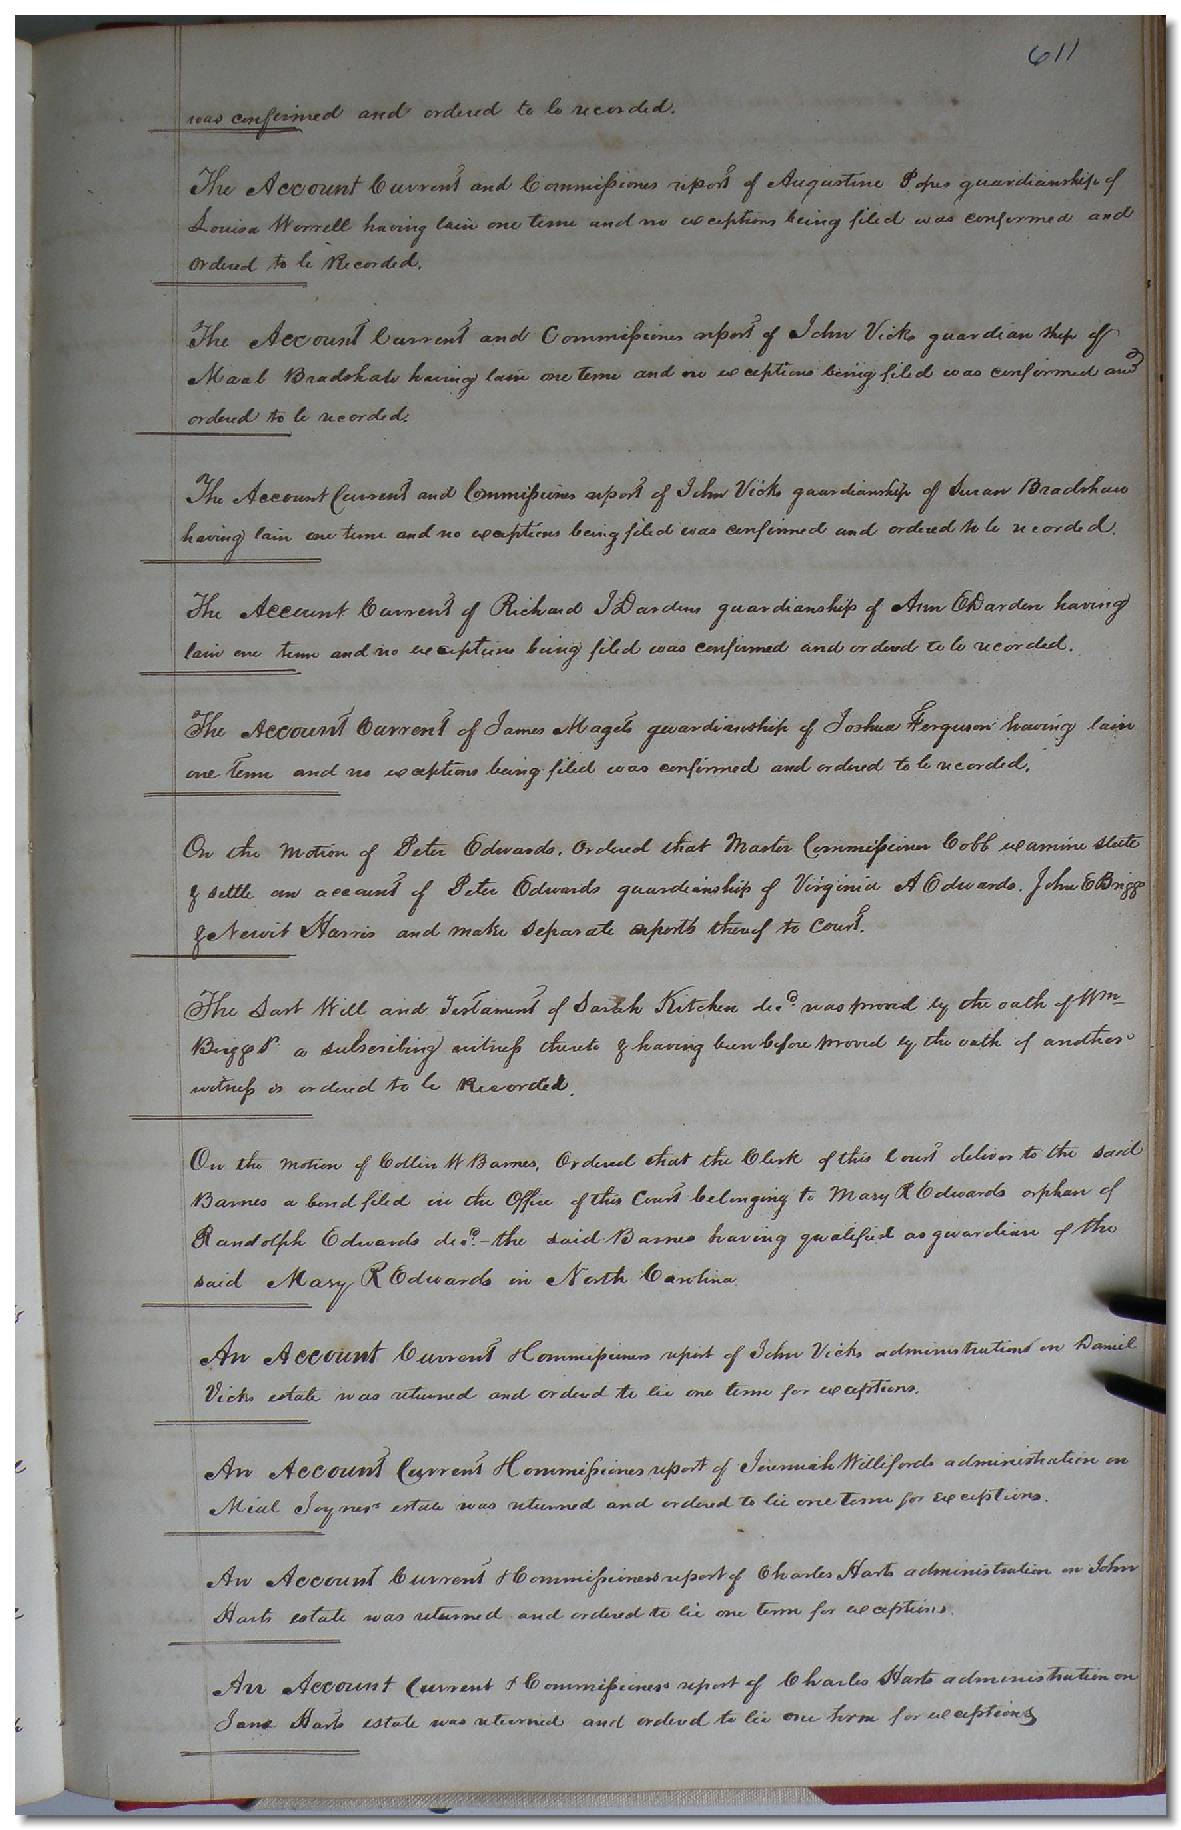 611
was confirmed and ordered to be recorded.
The Account Current and Commissioners report of Augustine Popes guardianship of
Louisa Worrell having lain one term and no exceptions being filed was confirmed and
ordered to be Recorded.
The Account Current and Commissioners report of John Vicks guardian ship of
Bradshaw having lain one term and no exceptions being filed was confirmed and
ordered to be recorded.
The Account Current and Commissioners report of John Vicks guardianship of Susan Bradshaw
having lain one term and no exceptions being filed was confirmed and ordered to be recorded.
The Account Current of Richard J Dardens guardianship of Ann E Darden having
lain one term and no exceptions being filed was confirmed and ordered to be recorded.
The Account Current of James Magets guardianship of Joshua Ferguson having lain
one term and no exceptions being filed was confirmed and ordered to be recorded.
On the motion of Peter Edwards. Ordered that Master Commissioner Cobb examine state
& settle an account of Peter Edwards guardianship of Virginia A Edwards. John E Briggs
& Newit Harris and make separate reports thereof to Court.
The Last Will and Testament of Sarah Kitchen decd. was proved by the oath of Wm
Briggs a subscribing witness thereto & having been before proved by the oath of another
witness is ordered to be Recorded.
On the motion of Collin W Barnes, Ordered that the Clerk of this Court deliver to the said
Barnes a bond filed in the Office of this Court belonging to Mary R Edwards orphan of
Randolph Edwards decd. - the said Barnes having qualified as guardian of the
said Mary R Edwards in North Carolina.
An Account Current & Commissioners report of John Vicks administration on Daniel
Vicks estate was returned and ordered to lie one term for exceptions.
An Account Current & Commissioners report of Jeremiah Willifords administration on
Mial Joyners estate was returned and ordered to lie one term for exceptions.
An Account Current & Commissioners report of Charles Harts administration on John
Harts estate was returned and ordered to lie one term for exceptions.
An Account Current & Commissioners report of Charles Harts administration on
Jane Harts estate was returned and ordered to lie one term for exceptions